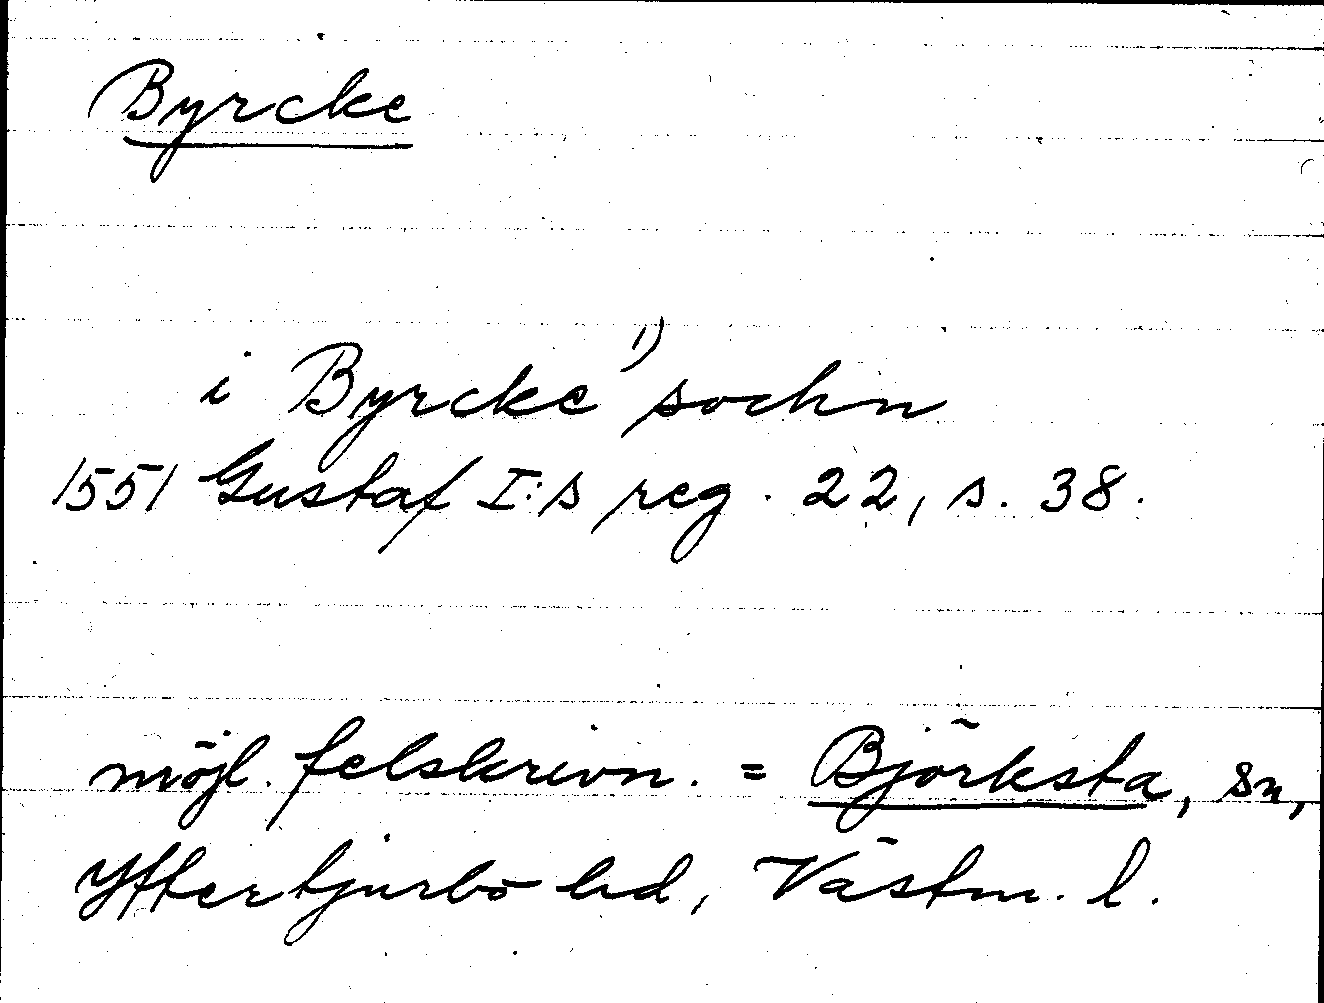 Byrcke
i Byrcke¹⁾ sochn
1551 Gustaf I:s reg. 22, s. 38.
möjl. felskrivn. = Björksta, sn,
Yttertjurbo hd, Västm. l.